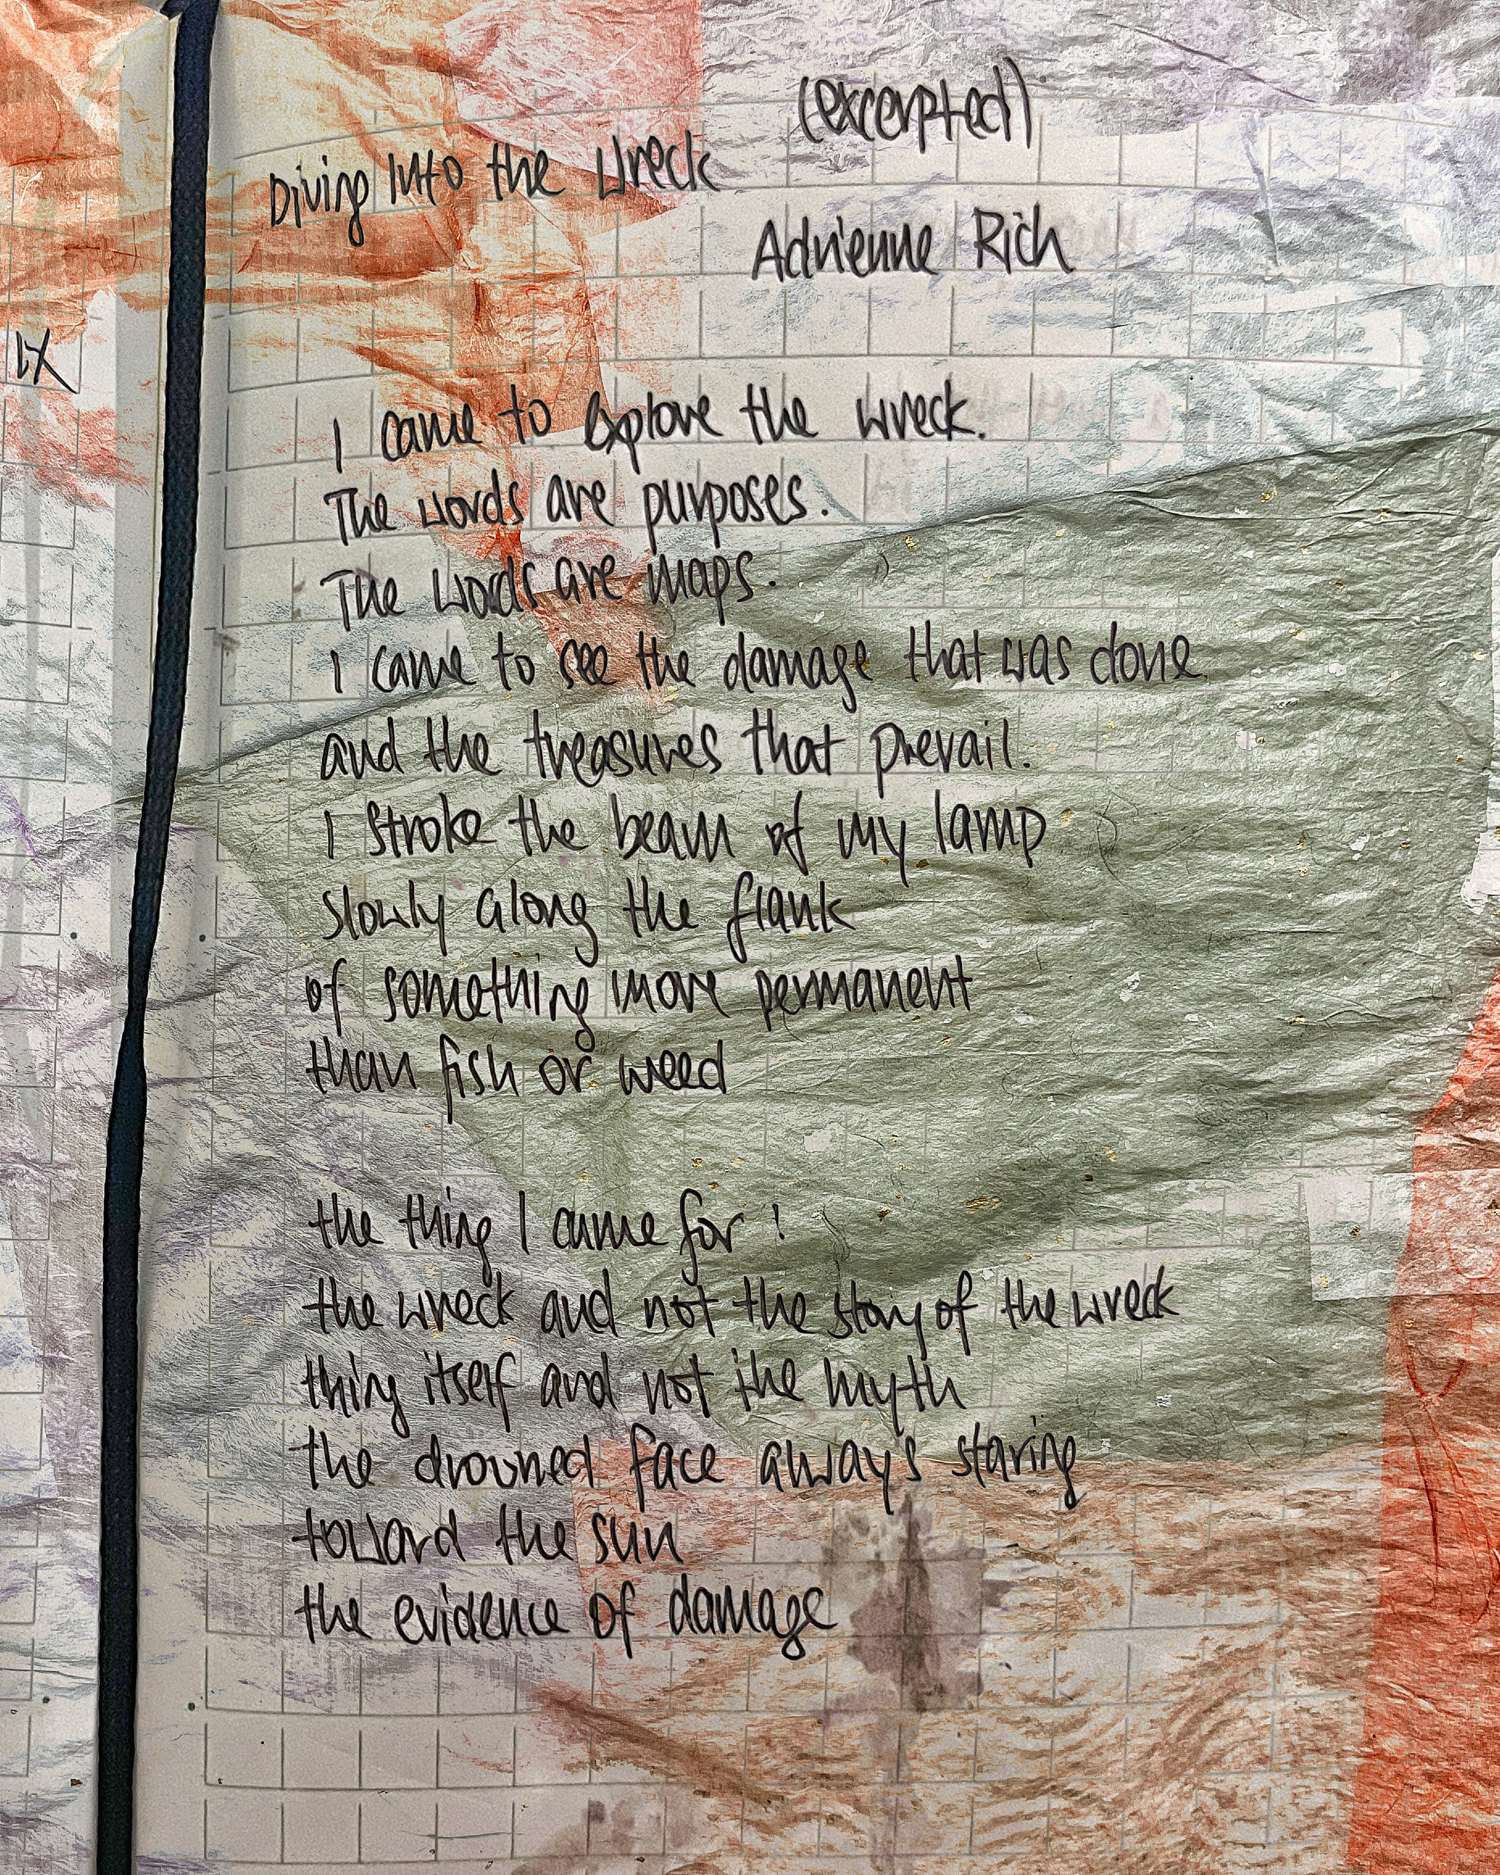 (excerpted)
Diving Into the Wreck
Adrienne Rich
I came to explore the wreck.
The words are purposes.
The words are maps.
I came to see the damage that was done
and the treasures that prevail.
I stroke the beam of my lamp
slowly along the flank
of something more permanent
than fish or weed
the thing I came for :
the wreck and not the story of the wreck
thing itself and not the myth
the drowned face always staring
toward the sun
the evidence of damage